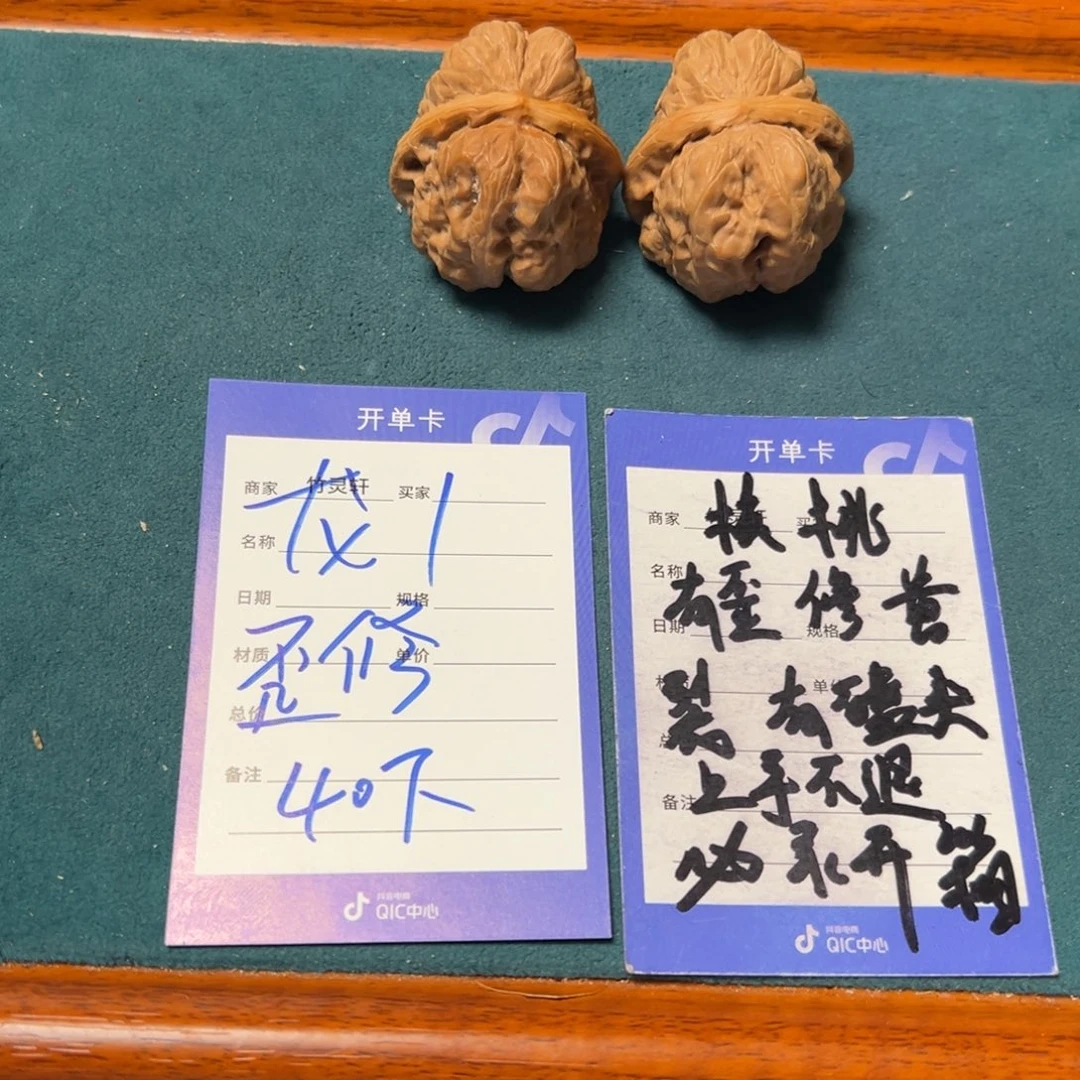 开单卡
商家 竹灵轩 买家
名称
日期 规格
材质 单价
总价
备注
歪修
40下
抖音电商
QIC中心
开单卡
商家
名称
日期 规格
备注
核桃
有歪修黄
裂有磕尖
上手不退
必录开箱
抖音电商
QIC中心